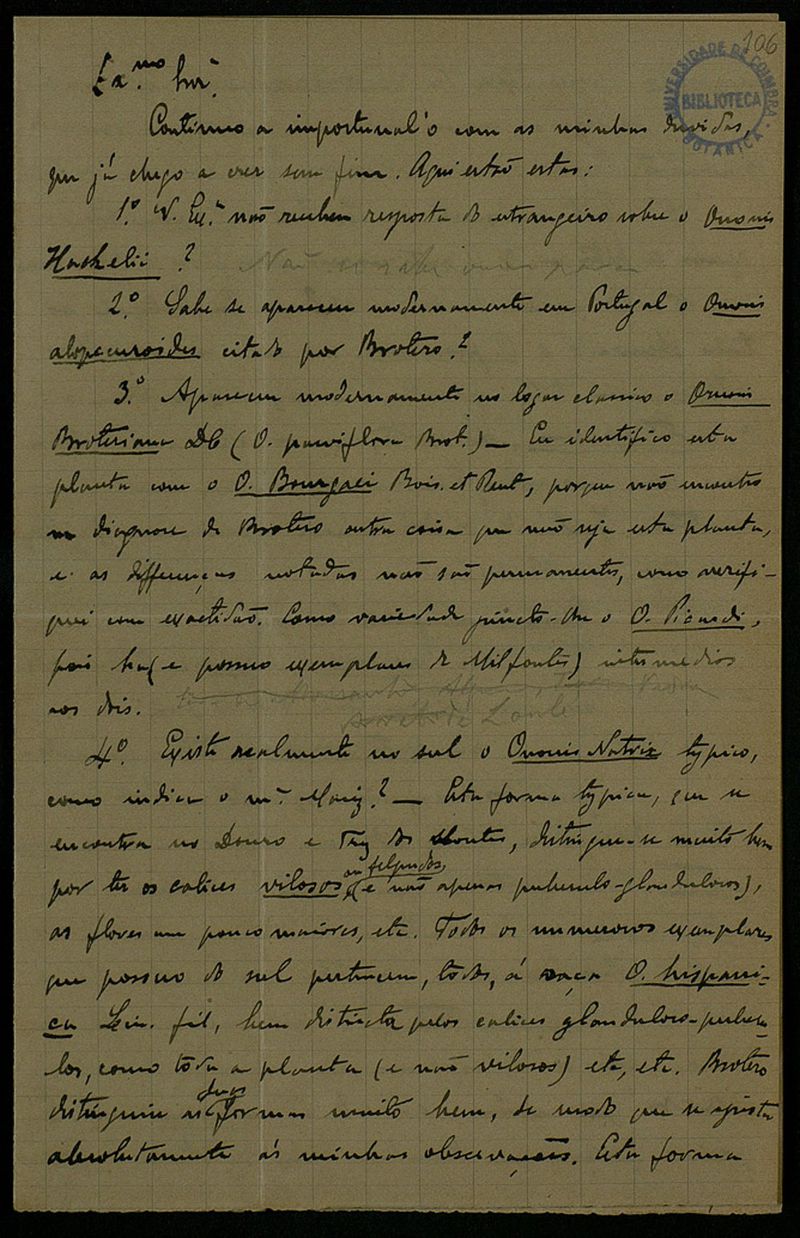 106
UNIVERSIDADE DE COIMBRA
BIBLIOTECA
BOTANICA
Ex.mo Snr.
Continuo a importunal'o com as minhas duvidas,
que já chego a crer sem fim. Aqui estão estas:
1.º V. Ex.ª não recebeu resposta do estrangeiro sobre o Ononis
Hackelii?
Não
2.º Sabe se apareceu modernamente em Portugal o Ononis
alopecuroides citado por Brotero?
3.º Apareceu modernamente no logar classico o Ononis
Broteriana DC (O. parviflora Brot.) — Eu identifico esta
planta com o O. Bourgaei Bois. et Reut, porque não encontro
na diagnose de Brotero outra coisa que não seja esta planta,
e as differenças notadas não são permanentes, como verifi-
quei com exactidão. Como variedade juncto-lhe o O. Picardi,
pois ha (e possuo exemplares de Milfontes) intermedios
aos dois.
4.º Existe realmente no sul o Ononis Natrix typico,
como indica o m.º Mariz? — Esta forma typica, que se
encontra no Douro e Traz os Montes, distingue-se muito bem
por ter os calices vilosos ou felpudos, (e não apenas puberulo-glandulosos),
as flores um pouco maiores, etc. Todos os numerosos exemplares
que possuo do sul pertencem, todos, á raça O. hispani-
ca Lin. fil, bem distincta pelos calices glanduloso-puberu-
los, como toda a planta (e não vilosos) etc, etc. Brotero
distinguiu as duas formas muito bem, de modo que se ajusta
absolutamente ás minhas observações. Esta forma